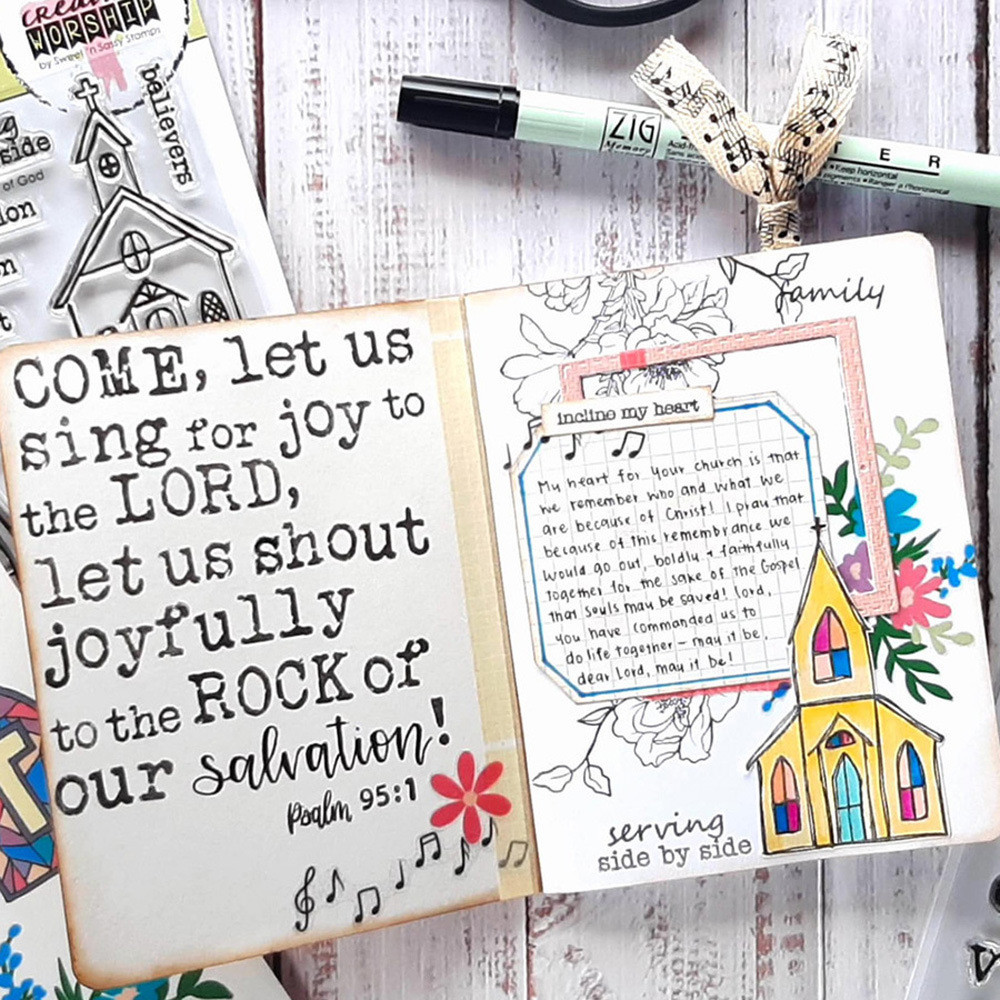 WORSHIP
by Sweet 'n Sassy Stamps
believers
side
of God
ZIG
Memory
T E R
Keep horizontal
COME, let us
sing for joy to
the LORD,
let us shout
joyfully
to the ROCK of
our salvation!
Psalm 95:1
family
incline my heart
My heart for your church is that
we remember who and what we
are because of Christ! I pray that
because of this remembrance we
would go out, boldly + faithfully
together for the sake of the Gospel
that souls may be saved! Lord,
you have commanded us to
do life together - may it be,
dear Lord, may it be!
serving
side by side